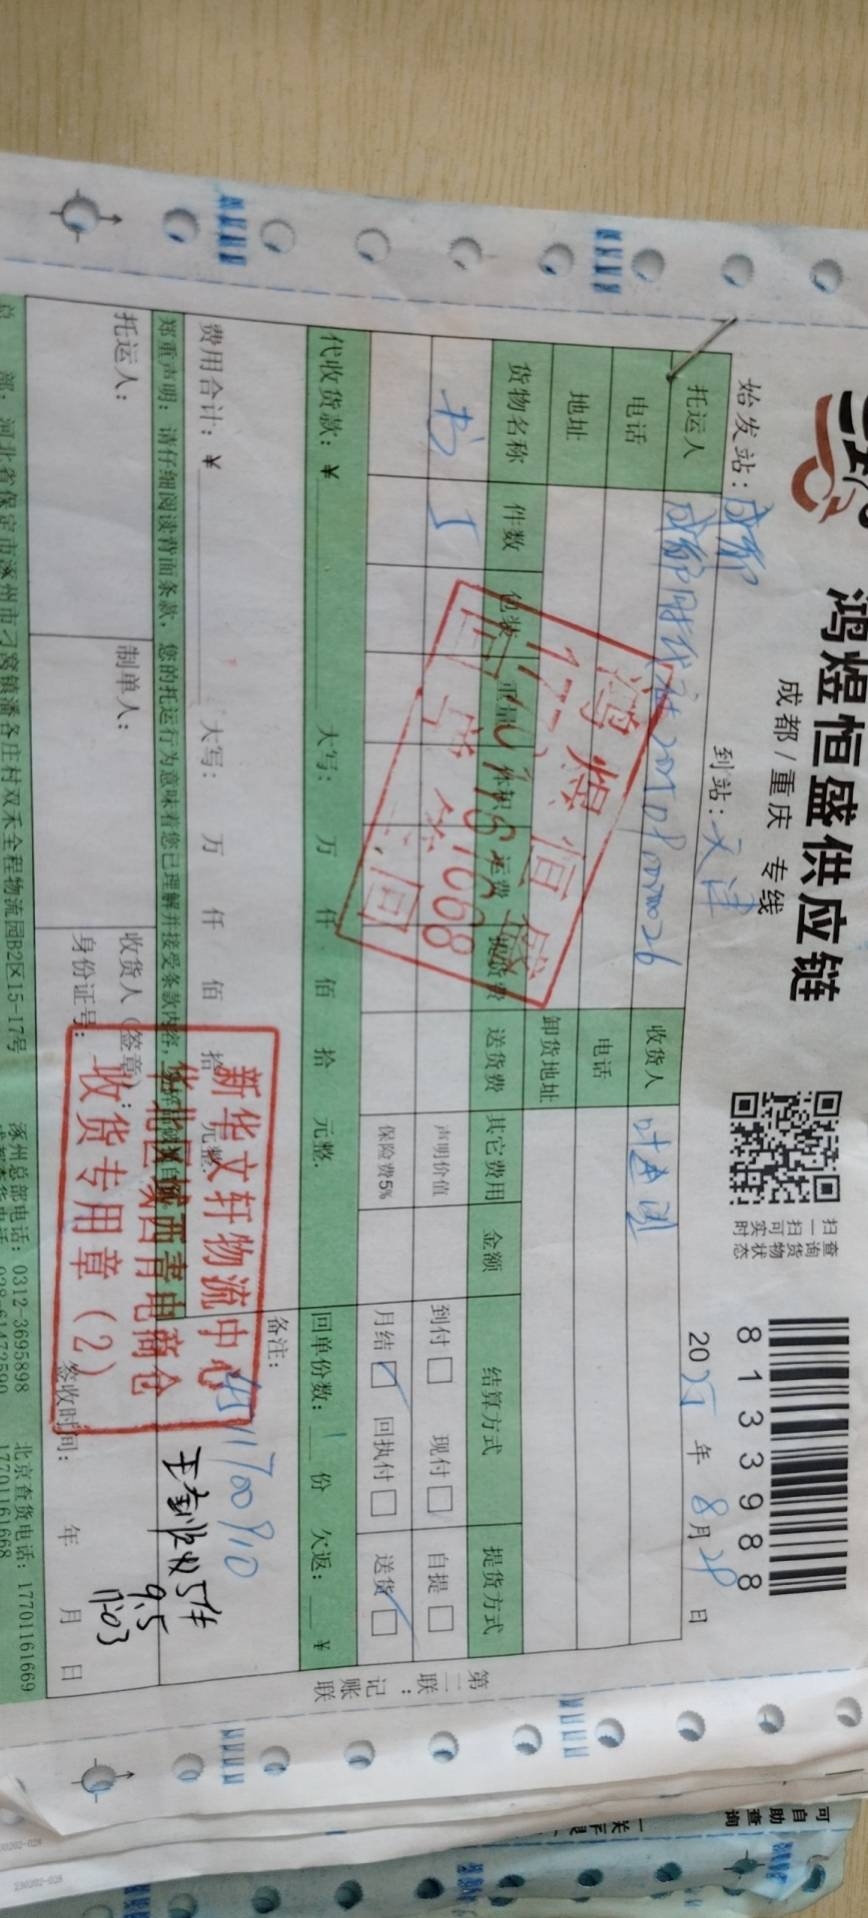 鸿煜恒盛供应链
成都/重庆 专线
扫一扫可实时
查询货物状态
81339988
始发站：成都
到站：天津
20 年 8月 日
托运人
收货人
电话
电话
地址
卸货地址
货物名称 件数 包装 重量 体积 运费 提货费 送货费 其它费用 金额 结算方式 提货方式
书 5
声明价值
到付 现付 自提
保险费5%
月结 回执付 送货
代收货款：￥ 大写： 万 仟 佰 拾 元整.
回单份数：1份 欠返：￥
费用合计：￥ 大写： 万 仟 佰 拾 元整.
备注：
郑重声明：请仔细阅读背面条款，您的托运行为意味着您已理解并接受条款内容，
托运人：
制单人：
收货人（签章）：
身份证号：
签收时间： 年 月 日
9.5
鸿煜恒盛
17701161668
新华文轩物流中心
华北区域西青电商仓
收货专用章（2）
第二联：记账联
部：河北省保定市涿州市刁窝镇潘各庄村双禾全程物流园B2区15-17号
涿州总部电话：0312-3695898
北京查货电话：17701161669
17701161668
可自助查询